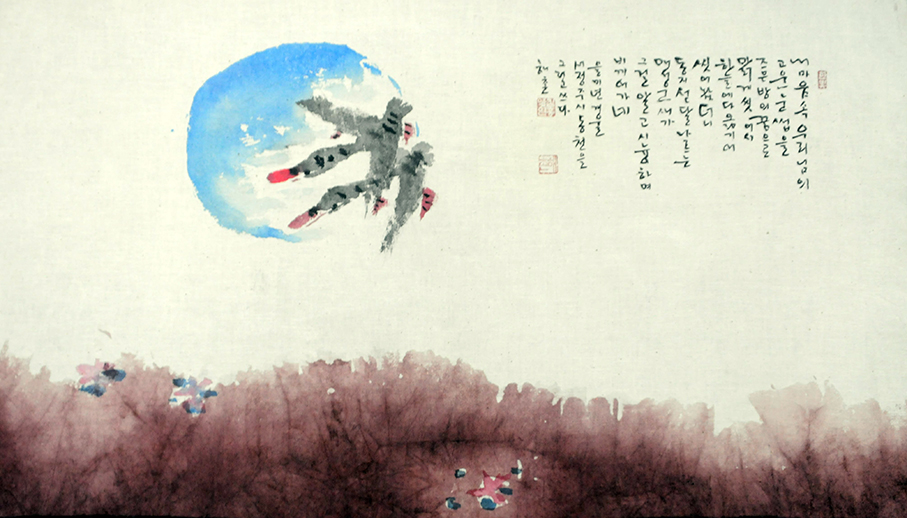 내마음속 우리님의
고운눈썹을
즈믄밤의꿈으로
맑게씻어서
하늘에다옮기어
심어놨더니
동지섣달나르는
매서운새가
그걸알고시늉하며
비끼어가네
을미년겨울
서정주시동천을
쓰다